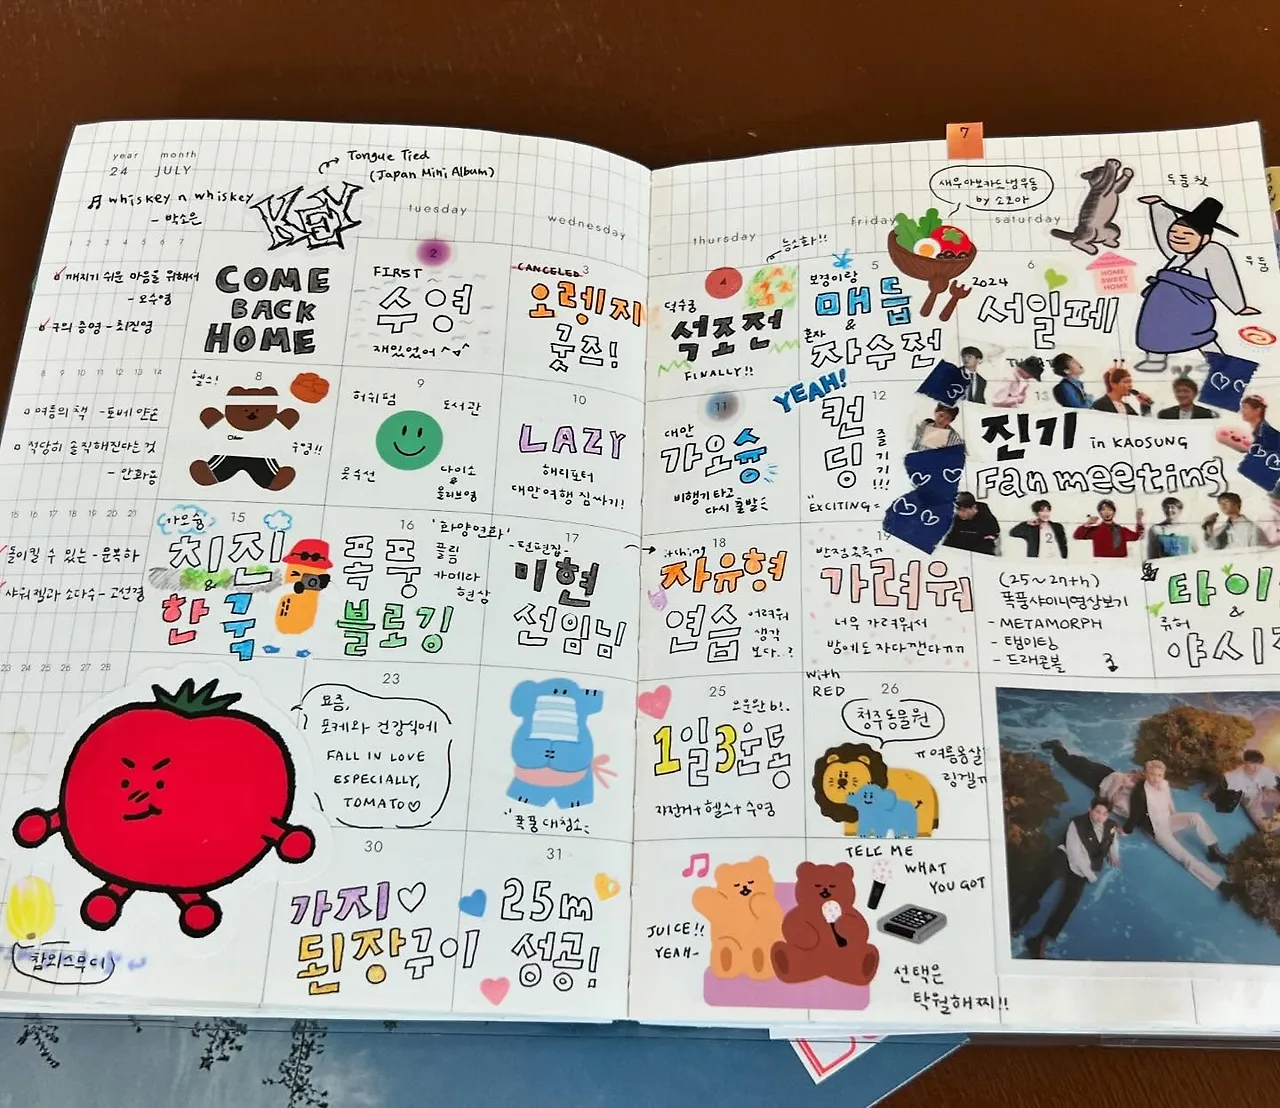 year month
24 JULY
Tongue Tied
(Japan Mini Album)
KEY
♬ whiskey n whiskey
- 박소은
1 2 3 4 5 6 7
깨지기 쉬운 마음을 위해서
- 오수영
구의 증명 - 최진영
8 9 10 11 12 13 14
여름의 책 - 토베 얀손
적당히 솔직해진다는 것
- 안화용
15 16 17 18 19 20 21
돌이킬 수 있는 - 문목하
샤워젤과 소다수 - 고선경
23 24 25 26 27 28
tuesday
wednesday
thursday
Friday
saturday
7
COME
BACK
HOME
2
FIRST
수영
재밌었어
CANCELED
3
오렌지
쿳즈!
4
능소화!!
덕수궁
석조전
FINALLY!!
5
보경이랑
매듭
&
혼자
자수전
새우아보카도냉우동
by 소코아
6
2024
서일페
HOME
SWEET
HOME
두둠칫
두둠
8
헬스!
수영!!
9
허쉬펌
도서관
옷수선
다이소
&
올리브영
10
LAZY
해리포터
대만여행 짐싸기!
11
대만
가오슝
비행기 타고
다시 출발
YEAH!
12
컨
딩
즐
기
기
!!!
EXCITING
13
진기 in KAOSUNG
Fan meeting
가오슝
15
치진
&
한국
16
폭풍
블로깅
'화양연화'
필름
카메라
현상
17
-단편집-
미현
선임님
18
itching
자유형
연습
어려워
생각
보다..?
19
가려워
너무 가려워서
밤에도 자다깬다ㅠㅠ
(25~27th)
폭풍샤이니영상보기
- METAMORPH
- 탬이팅
- 드래곤볼
타이
&
류허
야시
23
요즘,
포케와 건강식에
FALL IN LOVE
ESPECIALLY,
TOMATO♡
폭풍 대청소
25
오운완 b!.
1일3운동
자전거+헬스+수영
with
RED
26
청주동물원
ㅠ여름옹살
링겔ㅠ
참외스무디
30
가지♡
된장구이
31
25m
성공!
JUICE!!
YEAH~
TELL ME
WHAT
YOU GOT
선택은
탁월해찌!!